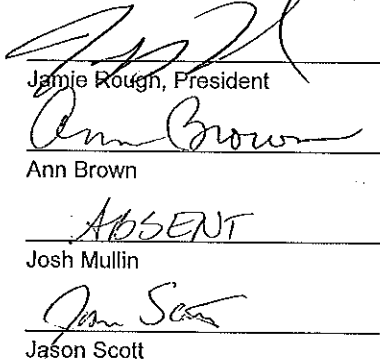 Jamie Rough, President
Ann Brown
Ann Brown
ABSENT
Josh Mullin
Jason Scott
Jason Scott